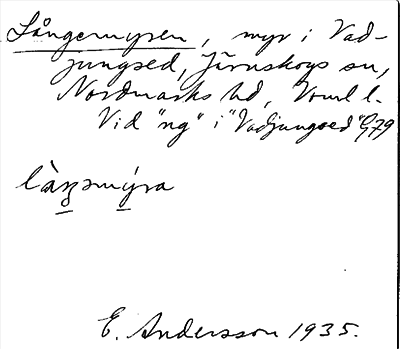 Långemyren, myr i Vad-
jungsed, Järnskogs sn,
Nordmarks hd, Vrml l.
Vid "ng" i "Vadjungsed" G79
làŋəmýra
E. Andersson 1935.